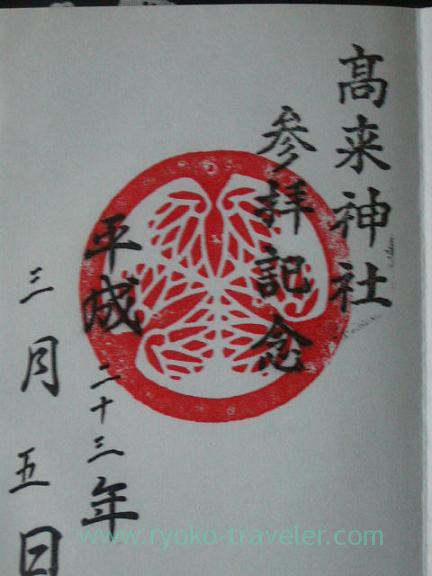 髙来神社
参拝記念
平成二十三年
三月五日
www.ryoko-traveler.com